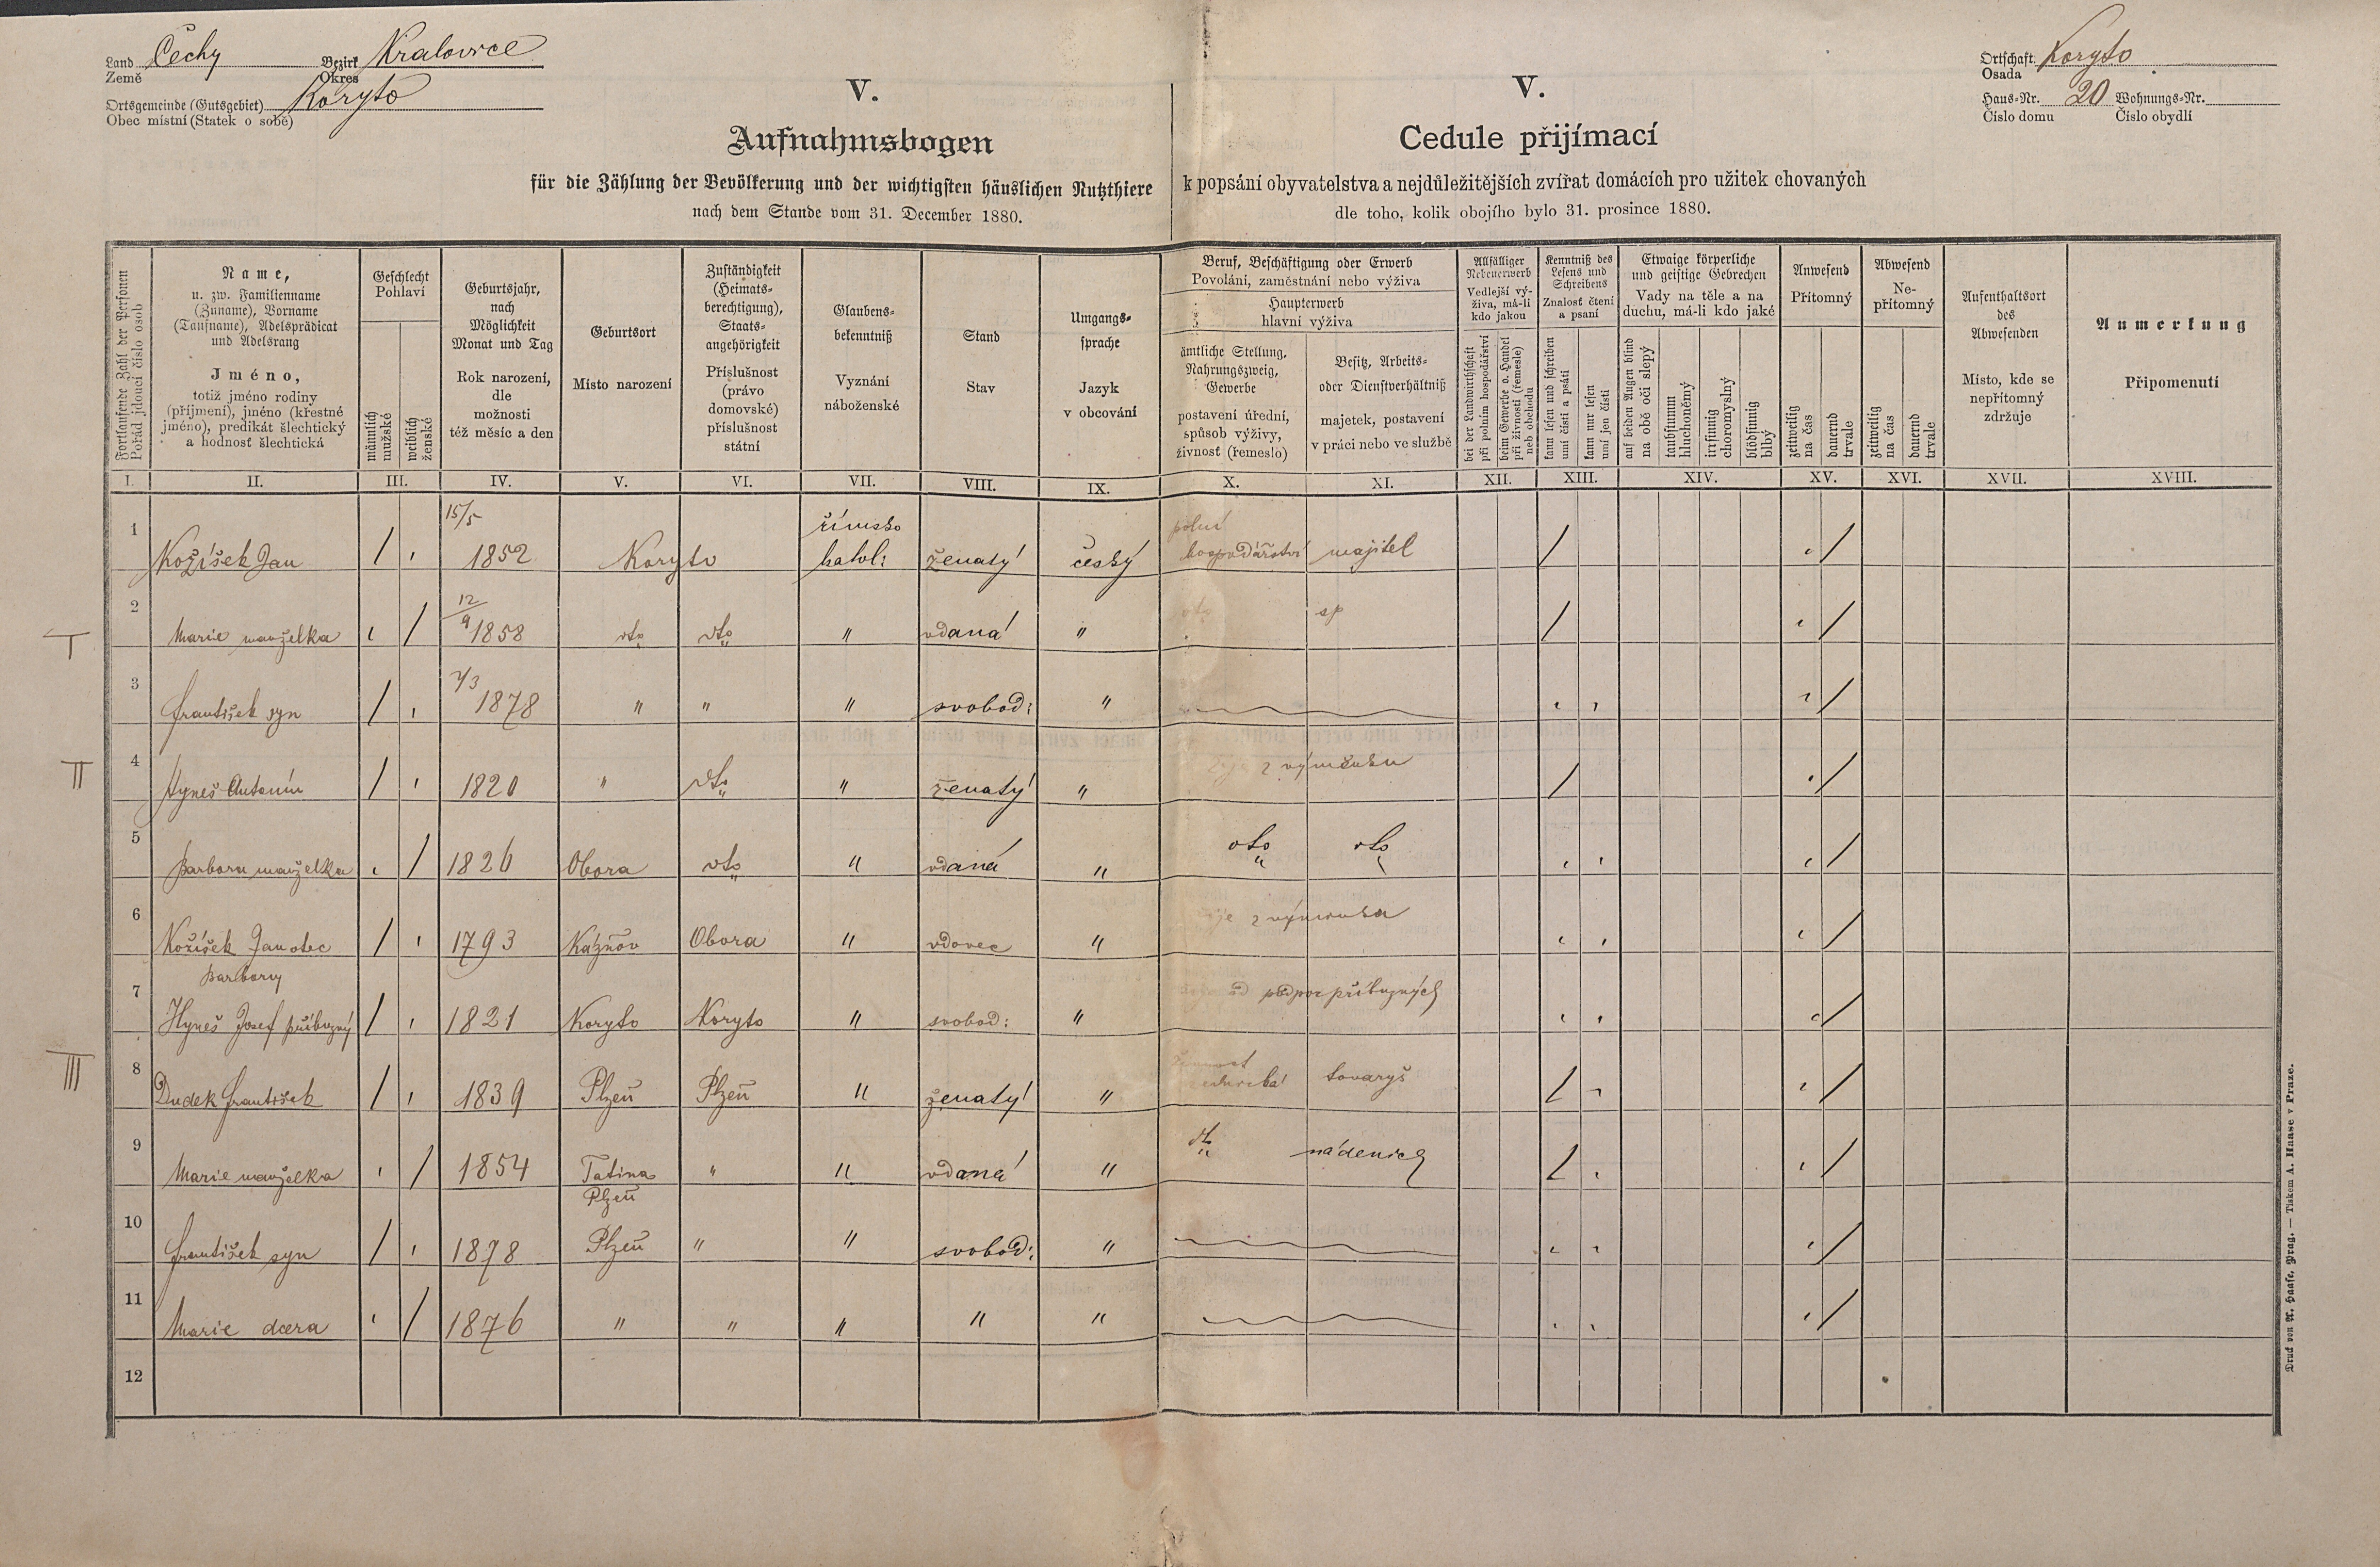 Land Čechy Bezirk Kralovice
Země Okres
Ortsgemeinde (Gutsgebiet) Koryto
Obec místní (Statek o sobě)
V.
Aufnahmsbogen
für die Zählung der Bevölkerung und der wichtigsten häuslichen Nutzthiere
nach dem Stande vom 31. December 1880.
V.
Cedule přijímací
k popsání obyvatelstva a nejdůležitějších zvířat domácích pro užitek chovaných
dle toho, kolik obojího bylo 31. prosince 1880.
Ortschaft Koryto
Osada
Haus-Nr. 20 Wohnungs-Nr.
Číslo domu Číslo obydlí
Fortlaufende Zahl der Personen
Pořád jdoucí číslo osob
Name,
u. zw. Familienname
(Zuname), Vorname
(Taufname), Adelsprädicat
und Adelsrang
Jméno,
totiž jméno rodiny
(příjmení), jméno (křestné
jméno), predikát šlechtický
a hodnosť šlechtická
Geschlecht
Pohlaví
männlich
mužské
weiblich
ženské
Geburtsjahr,
nach
Möglichkeit
Monat und Tag
Rok narození,
dle
možnosti
též měsíc a den
Geburtsort
Místo narození
Zuständigkeit
(Heimats-
berechtigung),
Staats-
angehörigkeit
Příslušnost
(právo
domovské)
příslušnost
státní
Glaubens-
bekenntniß
Vyznání
náboženské
Stand
Stav
Umgangs-
sprache
Jazyk
v obcování
Beruf, Beschäftigung oder Erwerb
Povolání, zaměstnání nebo výživa
Haupterwerb
hlavní výživa
ämtliche Stellung,
Nahrungszweig,
Gewerbe
postavení úřední,
spůsob výživy,
živnost (řemeslo)
Besitz, Arbeits-
oder Dienstverhältniß
majetek, postavení
v práci nebo ve službě
Allfälliger
Nebenerwerb
Vedlejší vý-
živa, má-li
kdo jakou
bei der Landwirthschaft
při polním hospodářství
beim Gewerbe o. Handel
při živnosti (řemesle)
neb obchodu
Kenntniß des
Lesens und
Schreibens
Znalosť čtení
a psaní
kann lesen und schreiben
umí čísti a psáti
kann nur lesen
umí jen čísti
Etwaige körperliche
und geistige Gebrechen
Vady na těle a na
duchu, má-li kdo jaké
auf beiden Augen blind
na obě oči slepý
taubstumm
hluchoněmý
irrsinnig
choromyslný
blödsinnig
blbý
Anwesend
Přítomný
zeitweilig
na čas
dauernd
trvale
Abwesend
Ne-
přítomný
zeitweilig
na čas
dauernd
trvale
Aufenthaltsort
des
Abwesenden
Místo, kde se
nepřítomný
zdržuje
Anmerkung
Připomenutí
I. II. III. IV. V. VI. VII. VIII. IX. X. XI. XII. XIII. XIV. XV. XVI. XVII. XVIII.
15/5 římsko polní
1 Kožíšek Jan / , 1852 Koryto katol: ženatý český hospodářství majitel / , /
12/9
I 2 Marie manželka , / 1858 dto dto " vdaná " dto / , /
7/3
3 František syn / , 1878 " " " svobod: " , , , /
II 4 Hyneš Antonín / , 1820 " dto " ženatý " z výměnku / , /
5 Barbora manželka , / 1826 Obora dto " vdaná " dto dto , , , /
6 Kožíšek Jan otec / , 1793 Kaznov Obora " vdovec " žije z výměnku , , , /
Barbory
7 Hyneš Josef příbuzný / , 1821 Koryto Koryto " svobod: " od podpor příbuzných , , , /
III 8 Dudek František / , 1839 Plzeň Plzeň " ženatý " tovaryš / , , /
9 Marie manželka , / 1854 Tatina " " vdaná " dto nádenice / , , /
Plzeň
10 František syn / , 1878 Plzeň " " svobod: " , , , /
11 Marie dcera , / 1876 " " " " " , , , /
12
Druck von A. Haase, Prag. — Tiskem A. Haase v Praze.